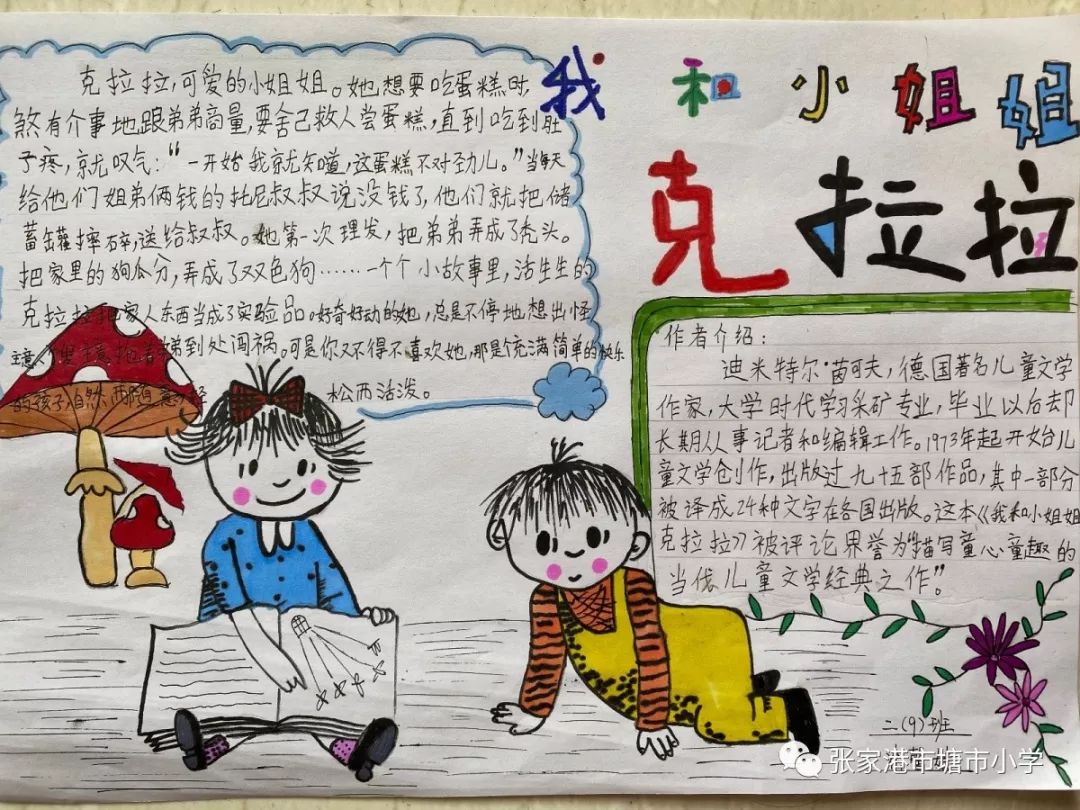 我和小姐姐
克拉拉
克拉拉,可爱的小姐姐。她想要吃蛋糕时,
煞有介事地跟弟弟商量,要舍己救人尝蛋糕,直到吃到肚
子疼,就叹气:“一开始我就知道,这蛋糕不对劲儿。”当每天
给他们姐弟俩钱的托尼叔叔说没钱了,他们就把储
蓄罐摔碎,送给叔叔。她第一次理发,把弟弟弄成了秃头。
把家里的狗瓜分,弄成了双色狗……一个个小故事里,活生生的
克拉拉把家人东西当成了实验品。好奇好动的她,总是不停地想出怪
主意,他着弟到处闯祸。可是你又不得不喜欢她,那是充满简单的快乐
的孩子,自然、而随意、轻
松而活泼。
作者介绍:
迪米特尔·茵可夫,德国著名儿童文学
作家,大学时代学习采矿专业,毕业以后却
长期从事记者和编辑工作。1973年起开始儿
童文学创作,出版过九十五部作品,其中一部分
被译成24种文字在各国出版。这本《我和小姐姐
克拉拉》被评论界誉为“描写童心童趣的
当代儿童文学经典之作”。
二(9)班
张家港市塘市小学